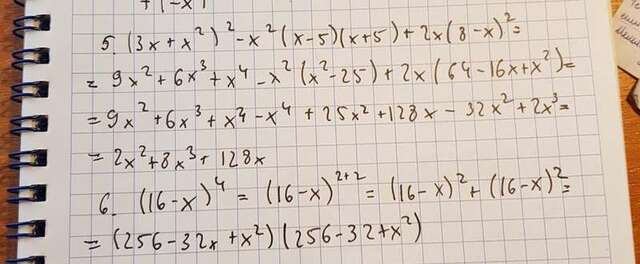 5. (3x+x²)² - x²(x-5)(x+5) + 2x(8-x)² =
= 9x² + 6x³ + x⁴ - x²(x²-25) + 2x(64-16x+x²) =
= 9x² + 6x³ + x⁴ - x⁴ + 25x² + 128x - 32x² + 2x³ =
= 2x² + 8x³ + 128x
6. (16-x)⁴ = (16-x)²⁺² = (16-x)² + (16-x)² =
= (256-32x+x²)(256-32+x²)